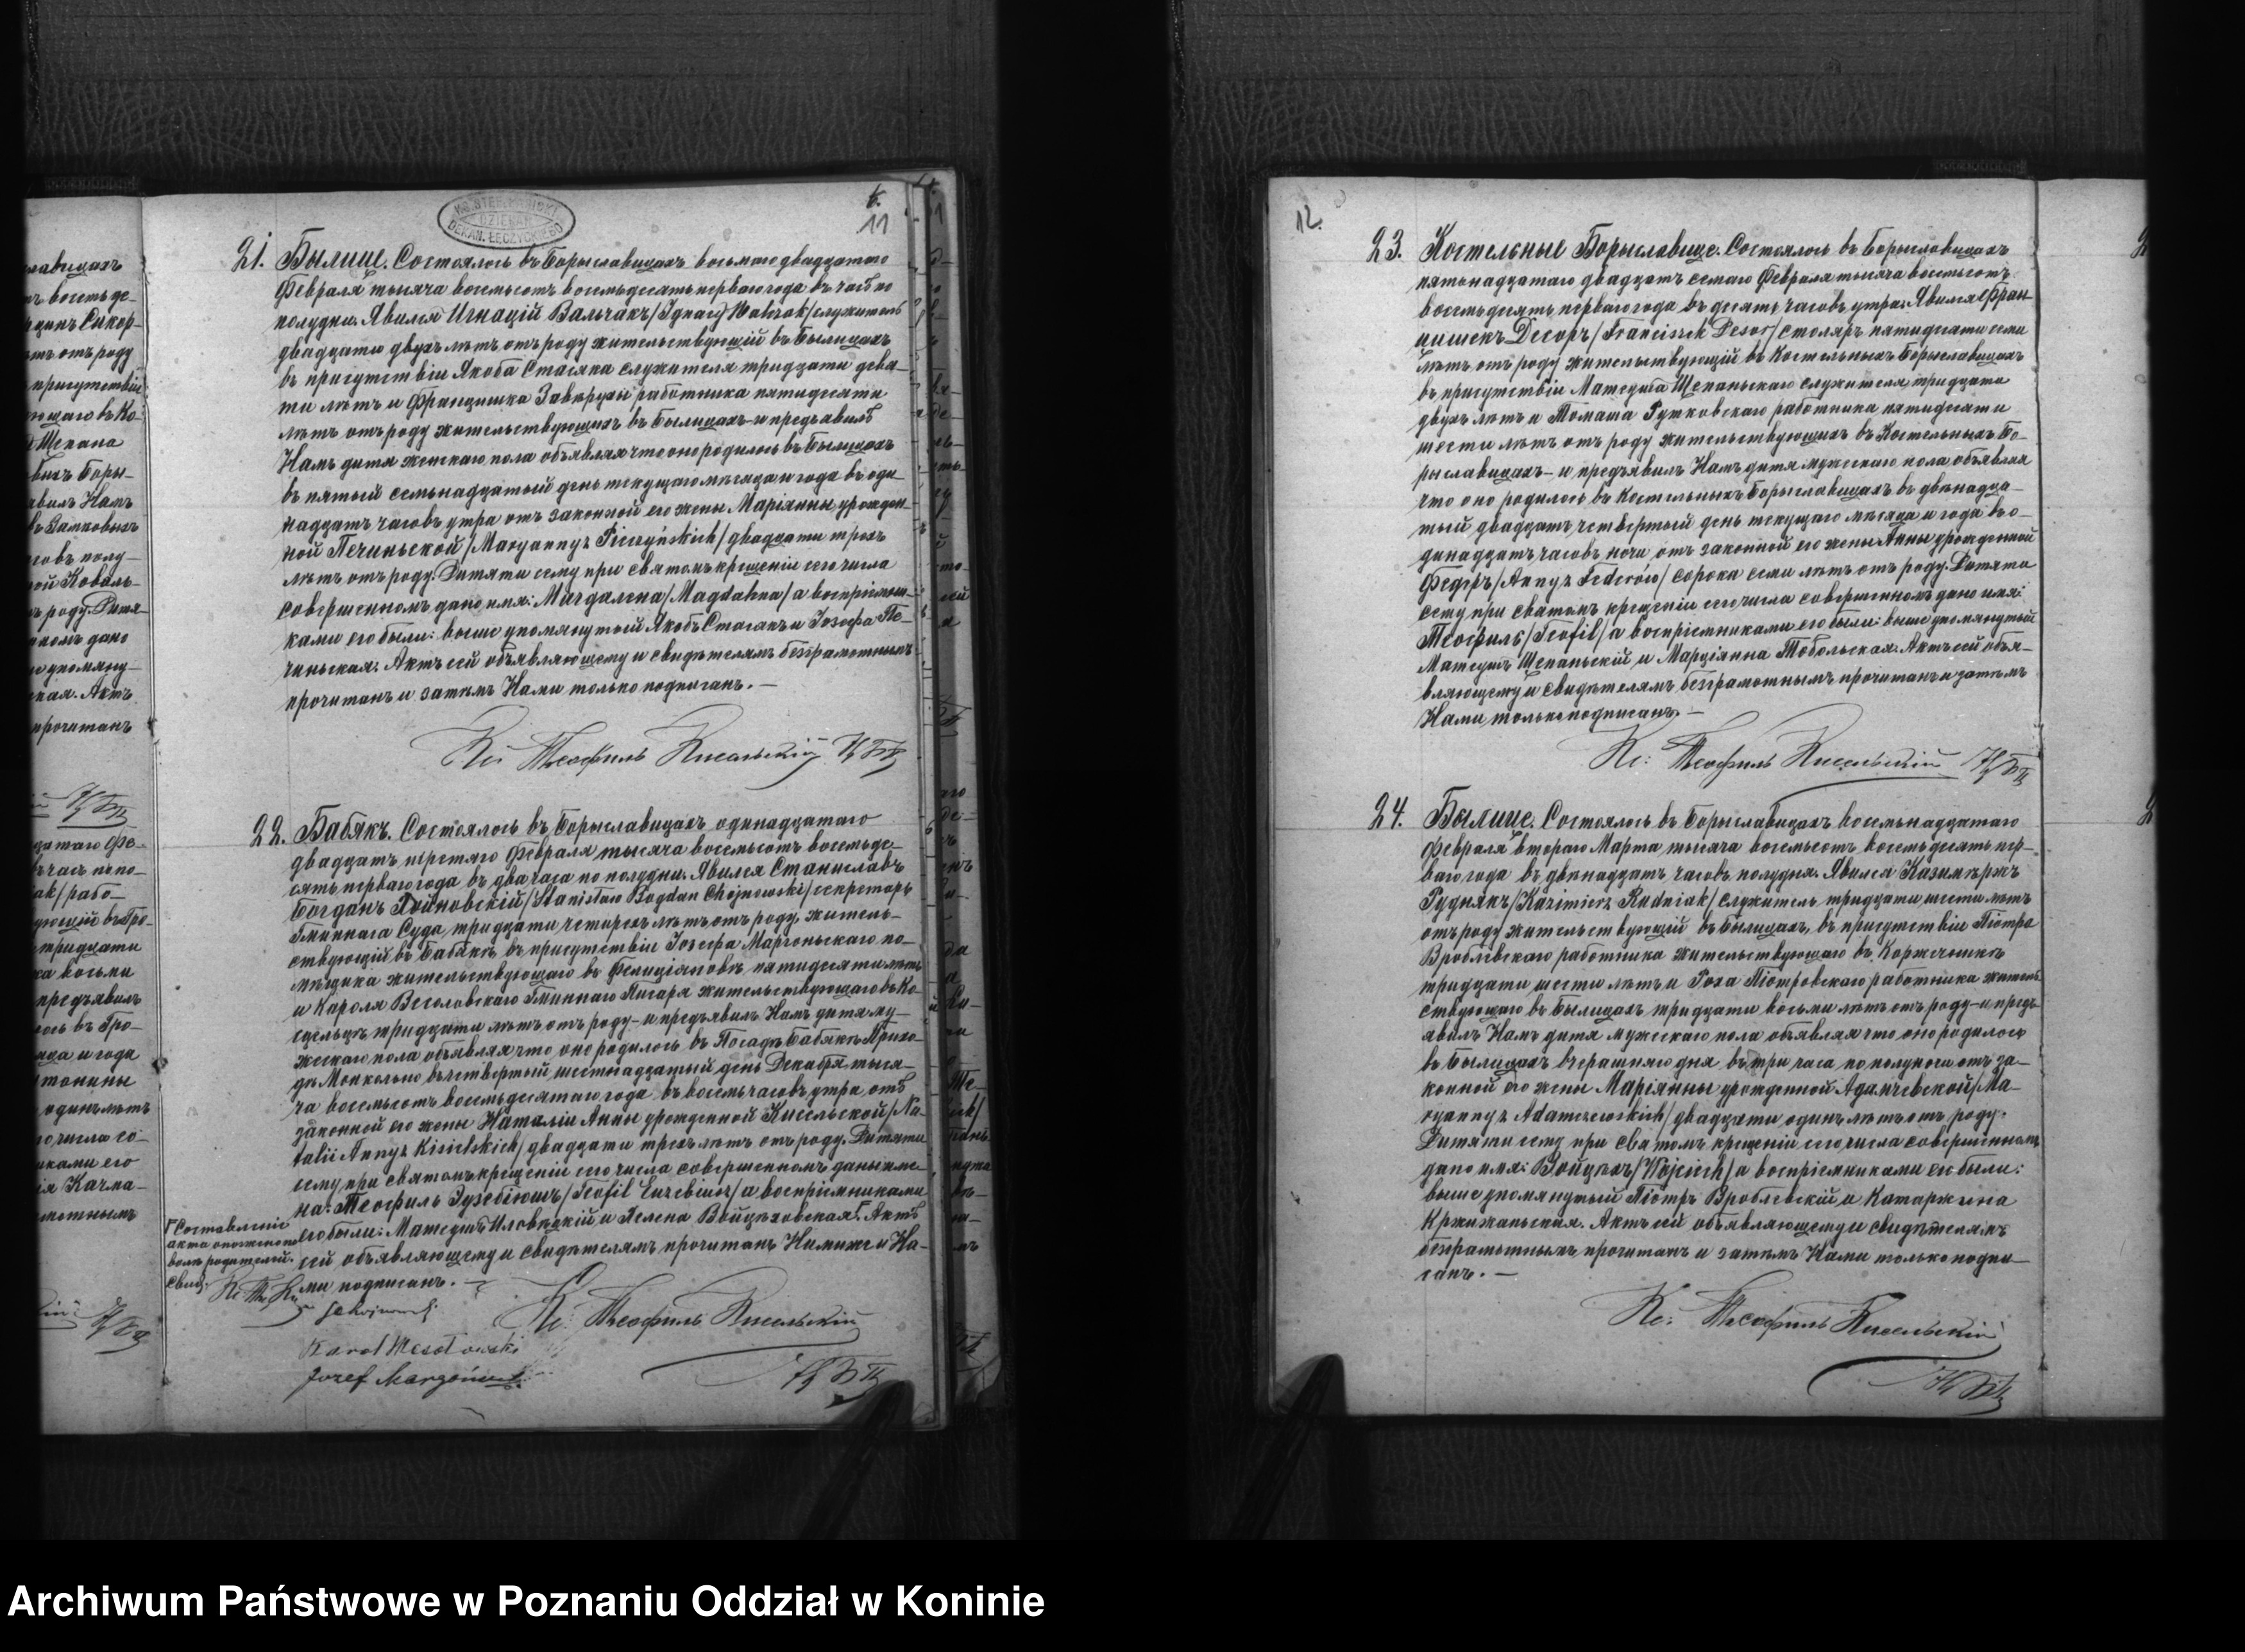 KS. STEF. 
DZIEKAN
DEKAN. ŁĘCZYCKIEGO
11
21. Былице. Состоялось въ Борыславицахъ восьмаго двадцатаго
Февраля тысяча восемьсотъ восемьдесятъ перваго года въ часъ по
полудни. Явился Игнацій Вальчакъ /Ignacy Walczak/ служитель
двадцати двухъ лѣтъ отъ роду жительствующій въ Былицахъ
въ присутствіи Якоба Стасяка служителя тридцати девя-
ти лѣтъ и Францишка Завѣрухи работника пятидесяти
лѣтъ отъ роду жительствующихъ въ Былицахъ - и предъявилъ
Намъ дитя женскаго пола объявляя что оно родилось въ Былицахъ
въ пятый семьнадцатый день текущаго мѣсяца и года въ оди-
надцать часовъ утра отъ законной его жены Маріянны урожден-
ной Печиньской /Maryanny z Pieczyńskich/ двадцати трехъ
лѣтъ отъ роду. Дитяти сему при святомъ крещеніи сего числа
совершенномъ дано имя: Магдалена /Magdalena/ а воспріемни-
ками его были: выше упомянутый Якобъ Стасякъ и Іозефа Пе-
чиньская. Актъ сей объявляющему и свидѣтелямъ безграмотнымъ
прочитанъ и затѣмъ Нами только подписанъ. —
Кс: Теофиль Кисельскій
22. Бабякъ. Состоялось въ Борыславицахъ одинадцатаго
двадцать третяго Февраля тысяча восемьсотъ восемьде-
сятъ перваго года въ два часа по полудни. Явился Станиславъ
Богданъ Хойновскій /Stanisław Bogdan Chojnowski/ секретарь
Гминнаго Суда тридцати четырехъ лѣтъ отъ роду, житель-
ствующій въ Бабякѣ въ присутствіи Іозефа Маргоньскаго по-
мѣщика жительствующаго въ Фелиціяновѣ пятидесяти лѣтъ
и Кароля Весоловскаго Гминнаго Писаря жительствующаго въ Ко-
сцельцѣ тридцати лѣтъ отъ роду - и предъявилъ Намъ дитя му-
жескаго пола объявляя что оно родилось въ Посадѣ Бабякѣ Прихо-
дѣ Монкольно въ четвертый шестнадцатый день Декабря тыся-
ча восемьсотъ восемьдесятаго года въ восемь часовъ утра отъ
законной его жены Наталіи Анны урожденной Кисельской /Na-
talii Anny z Kisielskich/ двадцати трехъ лѣтъ отъ роду. Дитяти
сему при святомъ крещеніи сего числа совершенномъ даны име-
на: Теофиль Эузебіюшъ /Teofil Euzebiusz/ а воспріемниками
его были: Матеушъ Иловѣцкій и Гелена Войцѣховская. Актъ
сей объявляющему и свидѣтелямъ прочитанъ Ними же и На-
ми подписанъ. —
Составленіе
акта опозжено по
волѣ родителей.
свид: Кс
S Chojnowski
Кс: Теофиль Кисельскій
Karol Wesołowski
Jozef Margoński
12.
23. Костельные Борыславице. Состоялось въ Борыславицахъ
пятьнадцатаго двадцать седьмаго Февраля тысяча восемьсотъ
восемьдесятъ перваго года въ десять часовъ утра. Явился Фран-
цишекъ Десоръ /Franciszek Desor/ столяръ пятидесяти семи
лѣтъ отъ роду жительствующій въ Костельныхъ Борыславицахъ
въ присутствіи Матеуша Щепаньскаго служителя тридцати
двухъ лѣтъ и Томаша Рутковскаго работника пятидесяти
шести лѣтъ отъ роду жительствующихъ въ Костельныхъ Бо-
рыславицахъ - и предъявилъ Намъ дитя мужескаго пола объявляя
что оно родилось въ Костельныхъ Борыславицахъ въ двѣнадца-
тый двадцать четвертый день текущаго мѣсяца и года въ о-
динадцать часовъ ночи отъ законной его жены Анны урожденной
Федеръ /Anny z Federów/ сорока семи лѣтъ отъ роду. Дитяти
сему при святомъ крещеніи сего числа совершенномъ дано имя:
Теофиль /Teofil/ а воспріемниками его были: выше упомянутый
Матеушъ Щепаньскій и Марціянна Тобольская. Актъ сей объя-
вляющему и свидѣтелямъ безграмотнымъ прочитанъ и затѣмъ
Нами только подписанъ. —
Кс: Теофиль Кисельскій
24. Былице. Состоялось въ Борыславицахъ восемьнадцатаго
Февраля втораго Марта тысяча восемьсотъ восемьдесятъ пер-
ваго года въ двѣнадцать часовъ полудня. Явился Казимѣржъ
Руднякъ /Kazimierz Rudniak/ служитель тридцати шести лѣтъ
отъ роду жительствующій въ Былицахъ, въ присутствіи Піотра
Вроблевскаго работника жительствующаго въ Коржечникѣ
тридцати шести лѣтъ и Роха Піотровскаго работника житель-
ствующаго въ Былицахъ тридцати восьми лѣтъ отъ роду - и предъ-
явилъ Намъ дитя мужескаго пола объявляя что оно родилось
въ Былицахъ вчерашняго дня въ три часа по полуночи отъ за-
конной его жены Маріянны урожденной Адамчевской /Ma-
ryanny z Adamczewskich/ двадцати одинъ лѣтъ отъ роду.
Дитяти сему при святомъ крещеніи сего числа совершенномъ
дано имя: Войцѣхъ /Wojciech/ а воспріемниками его были:
выше упомянутый Піотръ Вроблевскій и Катаржина
Кржижаньская. Актъ сей объявляющему и свидѣтелямъ
безграмотнымъ прочитанъ и затѣмъ Нами только подпи-
санъ. —
Кс: Теофиль Кисельскій
Archiwum Państwowe w Poznaniu Oddział w Koninie